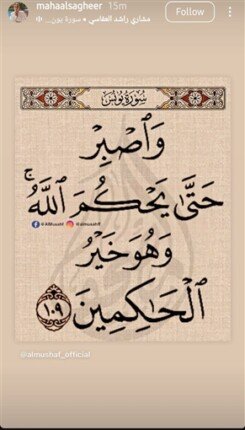 mahaalsagheer 15m
مشاري راشد العفاسي • سورة يون...
Follow
سُورَةُ يُونُسَ
وَٱصۡبِرۡ
حَتَّىٰ يَحۡكُمَ ٱللَّهُۚ
@AlMusahf @almushaf
وَهُوَ خَيۡرُ
ٱلۡحَٰكِمِينَ ١٠٩
@almushaf_official